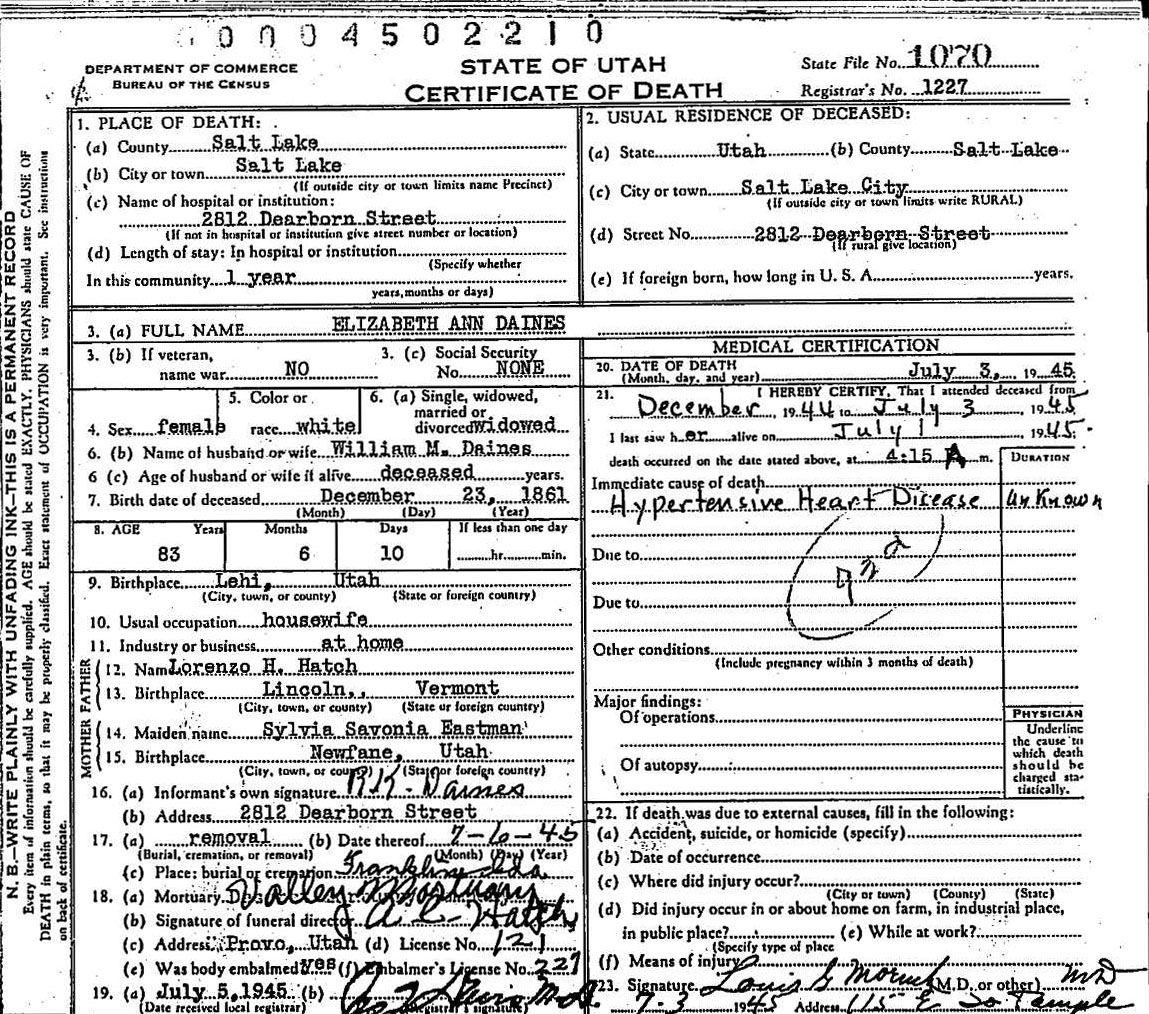 0004502210
DEPARTMENT OF COMMERCE
BUREAU OF THE CENSUS
STATE OF UTAH
CERTIFICATE OF DEATH
State File No. 1070
Registrar's No. 1227
N. B.—WRITE PLAINLY WITH UNFADING INK—THIS IS A PERMANENT RECORD
Every item of information should be carefully supplied. AGE should be stated EXACTLY. PHYSICIANS should state CAUSE OF
DEATH in plain terms, so that it may be properly classified. Exact statement of OCCUPATION is very important. See instructions
on back of certificate.
1. PLACE OF DEATH:
(a) County Salt Lake
(b) City or town Salt Lake
(If outside city or town limits name Precinct)
(c) Name of hospital or institution:
2812 Dearborn Street
(If not in hospital or institution give street number or location)
(d) Length of stay: In hospital or institution
(Specify whether
In this community 1 year
years, months or days)
2. USUAL RESIDENCE OF DECEASED:
(a) State Utah (b) County Salt Lake
(c) City or town Salt Lake City
(If outside city or town limits write RURAL)
(d) Street No. 2812 Dearborn Street
(If rural give location)
(e) If foreign born, how long in U. S. A. years.
3. (a) FULL NAME ELIZABETH ANN DAINES
3. (b) If veteran,
name war NO
3. (c) Social Security
No. NONE
4. Sex female
5. Color or
race white
6. (a) Single, widowed,
married or
divorced widowed
6. (b) Name of husband or wife William M. Daines
6 (c) Age of husband or wife if alive deceased years.
7. Birth date of deceased December 23, 1861
(Month) (Day) (Year)
8. AGE Years Months Days If less than one day
83 6 10 hr. min.
9. Birthplace Lehi, Utah
(City, town, or county) (State or foreign country)
10. Usual occupation housewife
11. Industry or business at home
FATHER
12. Name Lorenzo H. Hatch
13. Birthplace Lincoln,, Vermont
(City, town, or county) (State or foreign country)
MOTHER
14. Maiden name Sylvia Savonia Eastman
15. Birthplace Newfane, Utah
(City, town, or county) (State or foreign country)
16. (a) Informant's own signature R.K. Daines
(b) Address 2812 Dearborn Street
17. (a) removal (b) Date thereof 7-6-45
(Burial, cremation, or removal) (Month) (Day) (Year)
(c) Place: burial or cremation Franklin Ida
18. (a) Mortuary Valley Mortuary
(b) Signature of funeral director A E Hatch
(c) Address Provo, Utah (d) License No. 121
(e) Was body embalmed yes (f) Embalmer's License No. 227
19. (a) July 5, 1945 (b)
(Date received local registrar) (Registrar's signature)
MEDICAL CERTIFICATION
20. DATE OF DEATH
(Month, day, and year) July 3, 1945
21. I HEREBY CERTIFY, That I attended deceased from
December, 1944 to July 3, 1945
I last saw her alive on July 1 1945.
death occurred on the date stated above, at 4:15 A m.
DURATION
Immediate cause of death
Hypertensive Heart Disease unknown
Due to
Due to
Other conditions
(Include pregnancy within 3 months of death)
Major findings:
Of operations
Of autopsy
PHYSICIAN
Underline
the cause to
which death
should be
charged sta-
tistically.
22. If death was due to external causes, fill in the following:
(a) Accident, suicide, or homicide (specify)
(b) Date of occurrence
(c) Where did injury occur?
(City or town) (County) (State)
(d) Did injury occur in or about home on farm, in industrial place,
in public place? (e) While at work?
(Specify type of place
(f) Means of injury
23. Signature Louis G Moench (M.D. or other) MD
7-3 1945 Address 115 E So Temple